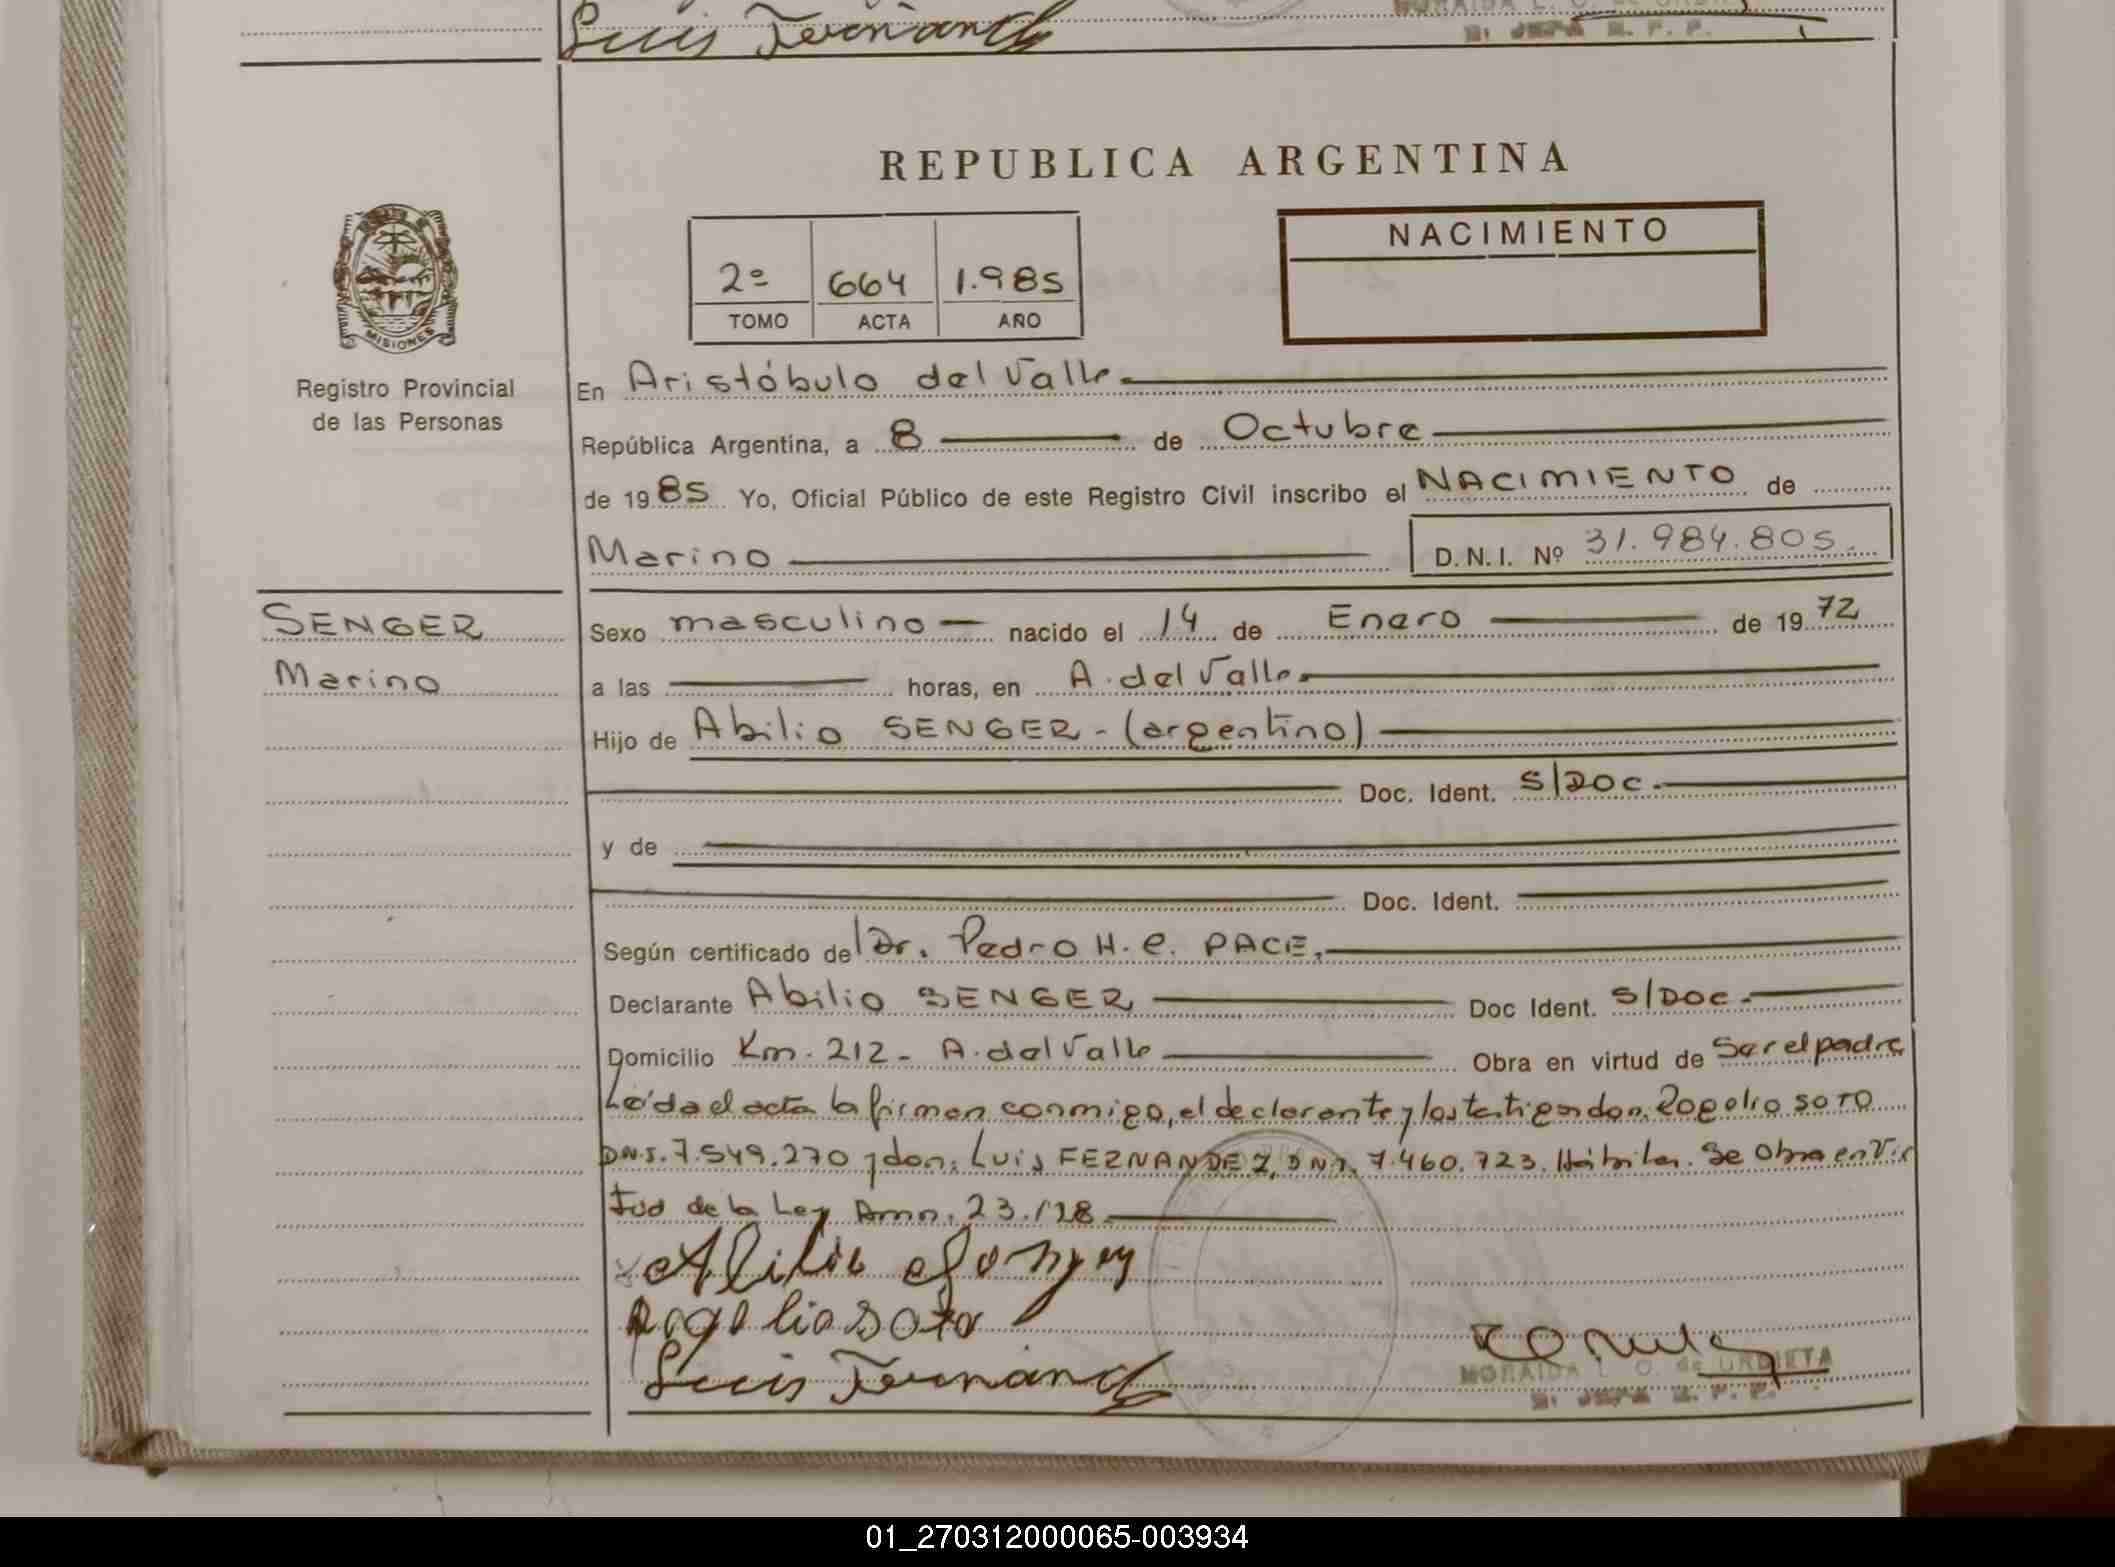 Luis Fernand
REPUBLICA ARGENTINA
NACIMIENTO
2º 664 1.985
TOMO ACTA AÑO
MISIONES
Registro Provincial
de las Personas
En Aristóbulo del Valle
República Argentina, a 8 de Octubre
de 1985 Yo, Oficial Público de este Registro Civil inscribo el NACIMIENTO de
Marino D.N.I. Nº 31.984.805.
SENGER
Marino
Sexo masculino nacido el 14 de Enero de 1972
a las horas, en A. del Valle
Hijo de Abilio SENGER - (argentino)
Doc. Ident. S/DOC.
y de
Doc. Ident.
Según certificado del Dr. Pedro H. C. PACE,
Declarante Abilio SENGER Doc Ident. S/DOC.
Domicilio Km. 212 - A. del Valle Obra en virtud de Ser el padre
Leída el acta la firman conmigo, el declarante y los testigos don. Rogelio SOTO
D.N.I. 7.549.270 y don: Luis FERNANDEZ, D.N.I. 7.460.723. Hábiles. Se Obra en Vir
tud de la Ley Amn. 23.128
Abilio
Rogelio Soto
Luis Fernand
MORAIDA L. O. de URDIETA
JEFA R. P. P.
01_270312000065-003934